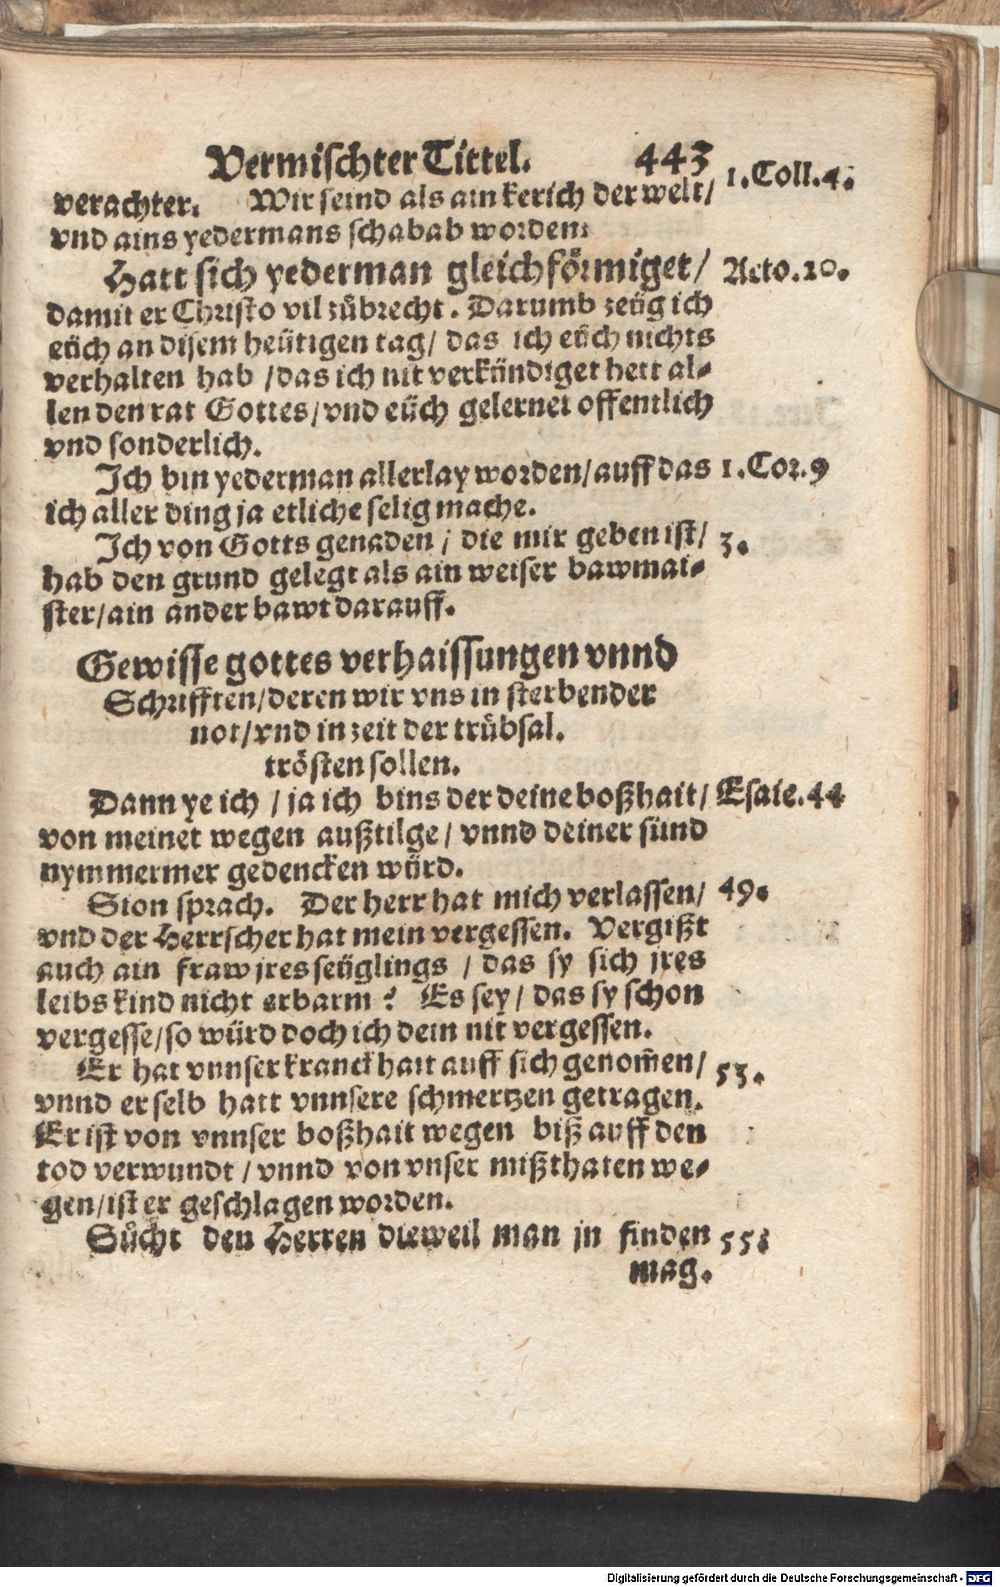 Vermischter Tittel. 443
verachter. Wir seind als ain kerich der welt/ 1.Coll.4.
vnd ains yedermans schabab worden:
Hatt sich yederman gleichförmiget/ Acto.20.
damit er Christo vil zůbrecht. Darumb zeüg ich
eüch an disem heütigen tag/ das ich eüch nichts
verhalten hab /das ich nit verkündiget hett al-
len den rat Gottes/vnd eüch gelernet offentlich
vnd sonderlich.
Ich bin yederman allerlay worden/auff das 1.Cor.9
ich aller ding ja etliche selig mache.
Ich von Gotts genaden / die mir geben ist/ 3.
hab den grund gelegt als ain weiser bawmai-
ster/ain ander bawt darauff.
Gewisse gottes verhaissungen vnnd
Schrifften/deren wir vns in sterbender
not/vnd in zeit der trübsal.
trösten sollen.
Dann ye ich / ja ich bins der deine boßhait/ Esaie.44
von meinet wegen außtilge/ vnnd deiner sünd
nymmermer gedencken würd.
Sion sprach. Der herr hat mich verlassen/ 49.
vnd der Herrscher hat mein vergessen. Vergißt
auch ain fraw jres seüglings / das sy sich jres
leibs kind nicht erbarm? Es sey/ das sy schon
vergesse/so würd doch ich dein nit vergessen.
Er hat vnnser kranckhait auff sich genom̃en/ 53.
vnnd er selb hatt vnnsere schmertzen getragen.
Er ist von vnnser boßhait wegen biß auff den
tod verwundt / vnnd von vnser mißthaten we-
gen/ist er geschlagen worden.
Sůcht den Herren dieweil man jn finden 55.
mag.
Digitalisierung gefördert durch die Deutsche Forschungsgemeinschaft - DFG